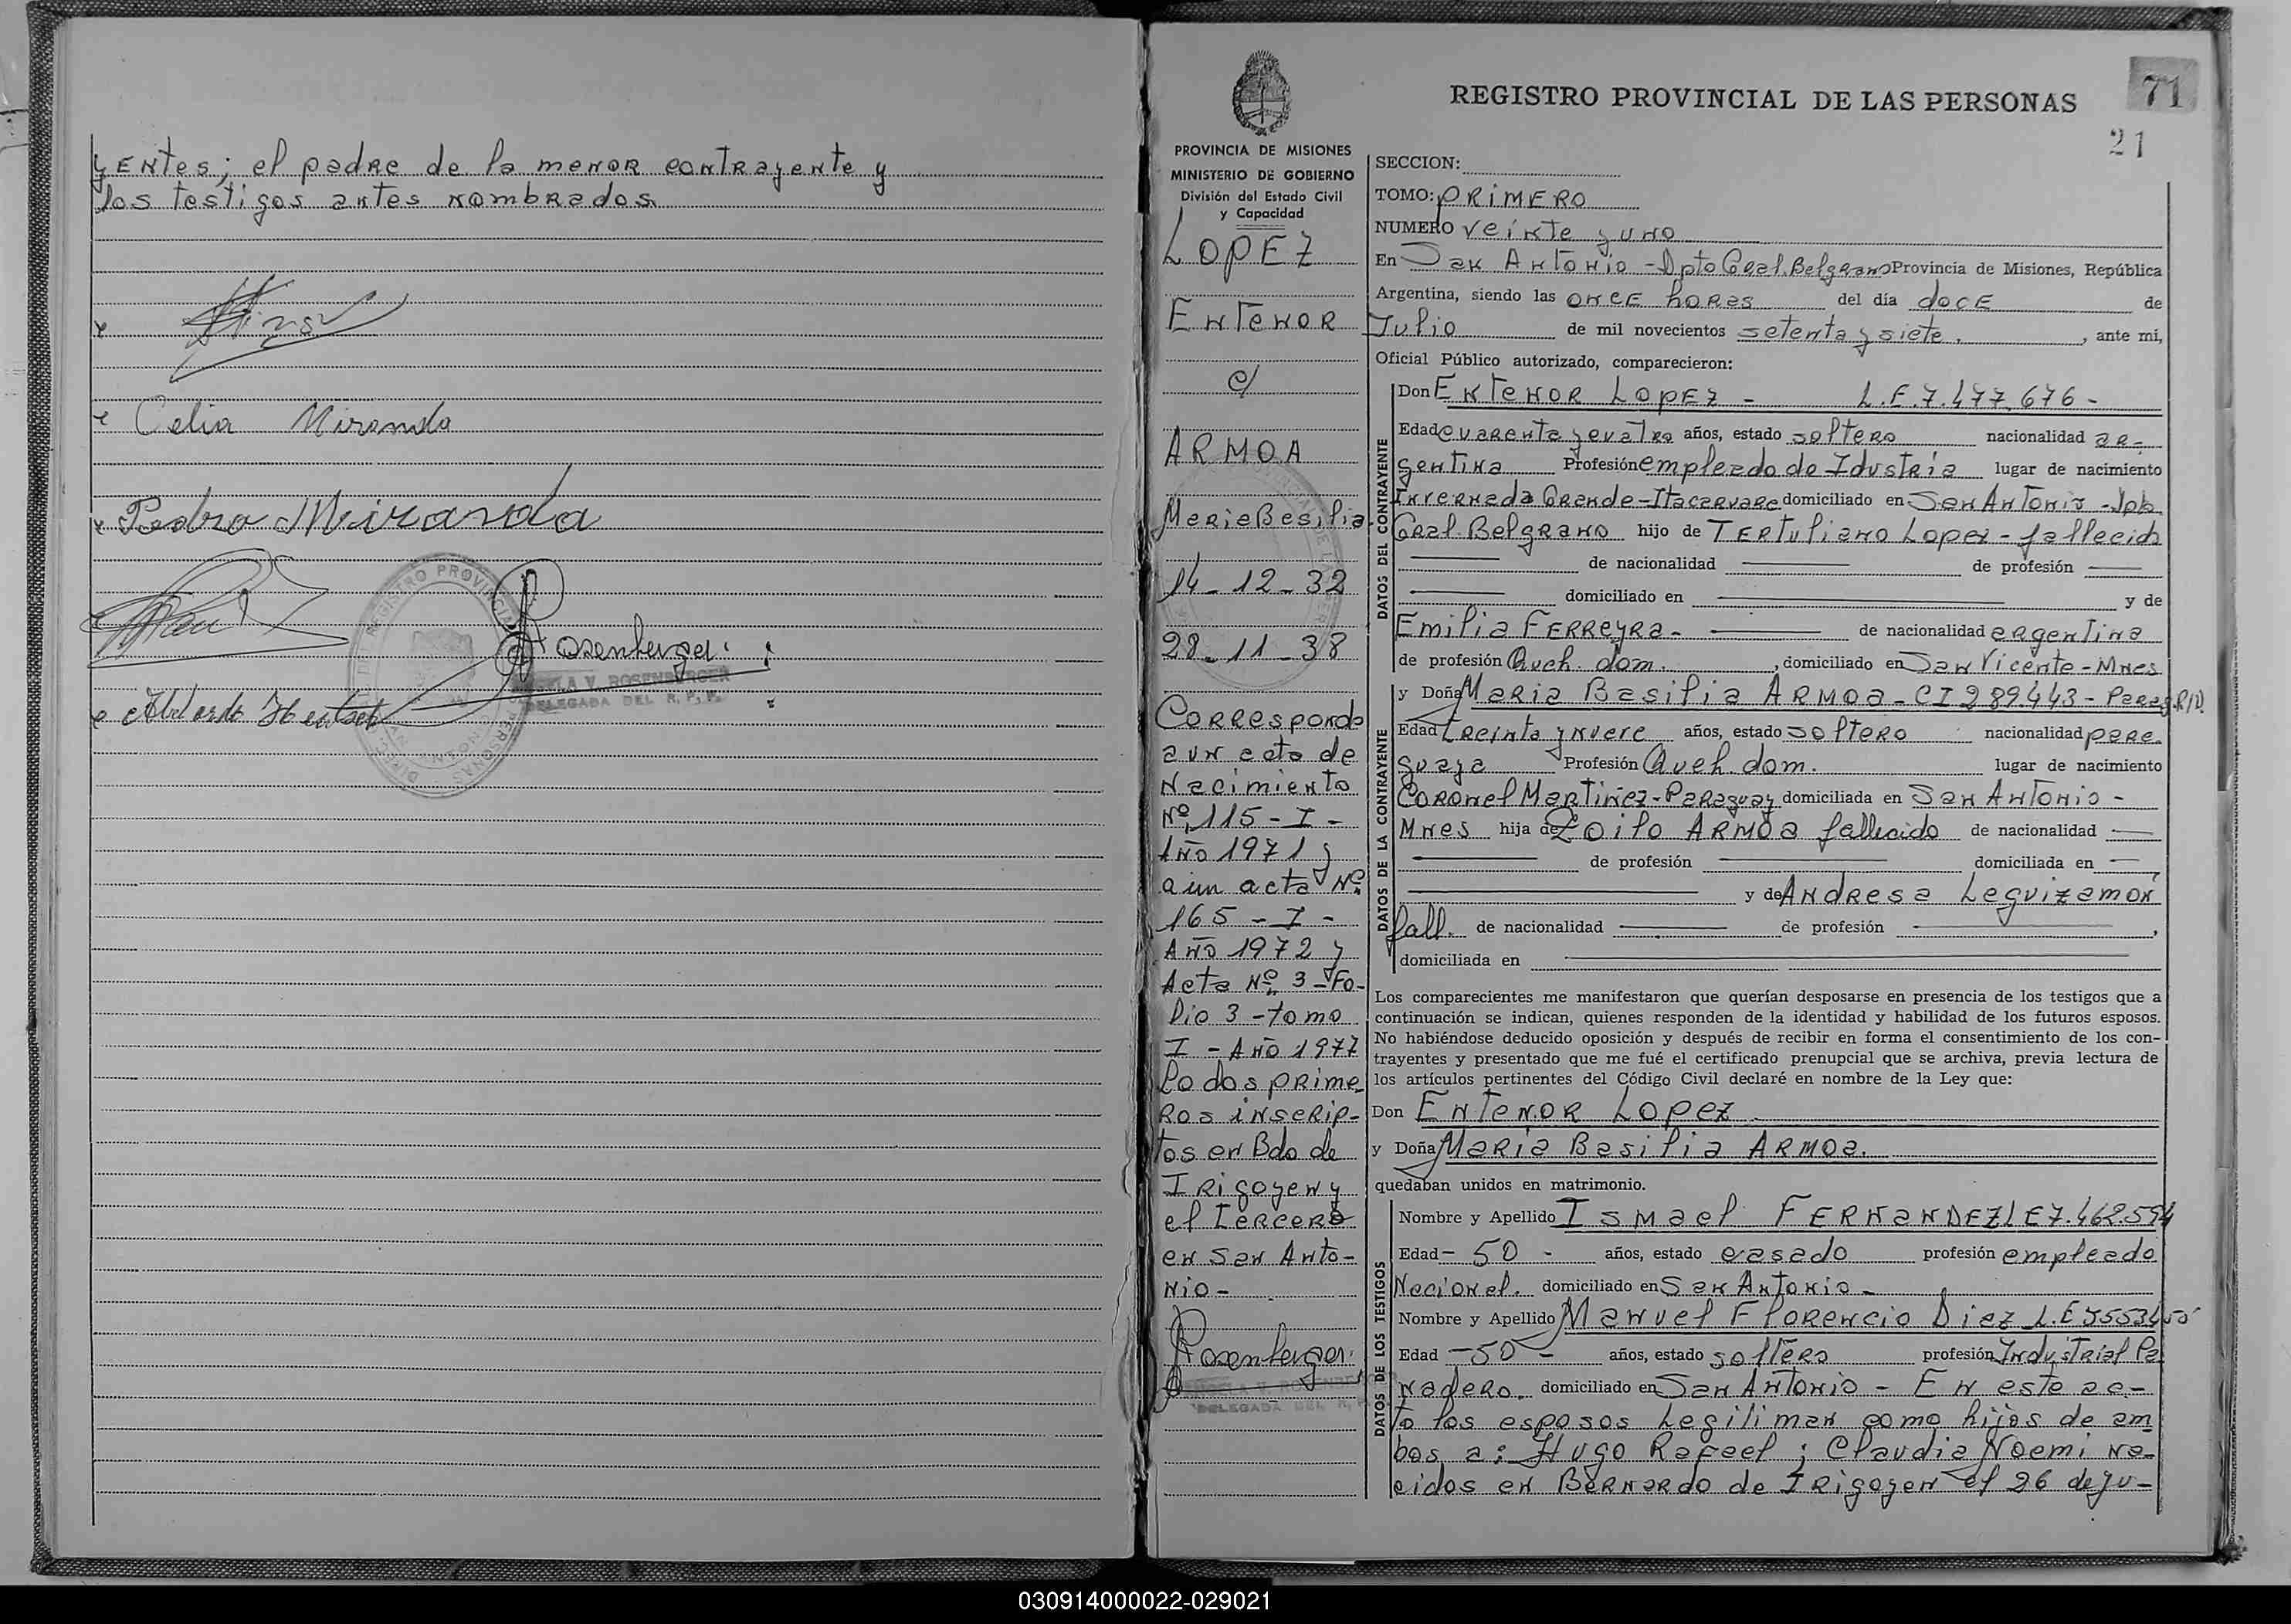 yentes; el padre de la menor contrayente y
los testigos antes nombrados.
Celia Miranda
Pedro Miranda
Rosenberger
ROSENBERGER
DELEGADA DEL R. P. P.
REGISTRO PROVINCIAL DE LAS PERSONAS
71
21
PROVINCIA DE MISIONES
MINISTERIO DE GOBIERNO
División del Estado Civil
y Capacidad
LOPEZ
ENTENOR
c/
ARMOA
Maria Basilia
14-12-32
28-11-38
Corresponde
a un acta de
Nacimiento
Nº 115-I-
Año 1971 y
a un acta Nº
165-I-
Año 1972 y
Acta Nº 3-Fo-
lio 3-tomo
I-Año 1977
Lo dos prime
ros inscrip-
tos en Bdo de
Irigoyen y
el tercero
en San Anto-
nio-
Rosenberger
DELEGADA DEL R. P.
SECCION:
TOMO: PRIMERO
NUMERO Veinte y uno
En San Antonio - Dpto Gral. Belgrano Provincia de Misiones, República
Argentina, siendo las once horas del día doce de
Julio de mil novecientos setenta y siete, ante mí,
Oficial Público autorizado, comparecieron:
DATOS DEL CONTRAYENTE
Don Entenor Lopez - L.E. 7.477.676-
Edad cuarenta y cuatro años, estado soltero nacionalidad ar-
gentina Profesión empleado de Idustria lugar de nacimiento
Invernada Grande-Itacaruare domiciliado en San Antonio - Dpto
Gral. Belgrano hijo de Tertuliano Lopez - fallecido
de nacionalidad de profesión
domiciliado en y de
Emilia Ferreyra - de nacionalidad argentina
de profesión Queh. dom. , domiciliado en San Vicente - Mnes
DATOS DE LA CONTRAYENTE
y Doña Maria Basilia Armoa - CI 289.443 - Parag.
Edad treinta y nueve años, estado soltero nacionalidad para-
guaya Profesión Queh. dom. lugar de nacimiento
Coronel Martinez - Paraguay domiciliada en San Antonio -
Mnes hija de Zoilo Armoa fallecido de nacionalidad
de profesión domiciliada en
y de Andresa Leguizamon
fall. de nacionalidad de profesión
domiciliada en
Los comparecientes me manifestaron que querían desposarse en presencia de los testigos que a
continuación se indican, quienes responden de la identidad y habilidad de los futuros esposos.
No habiéndose deducido oposición y después de recibir en forma el consentimiento de los con-
trayentes y presentado que me fué el certificado prenupcial que se archiva, previa lectura de
los artículos pertinentes del Código Civil declaré en nombre de la Ley que:
Don Entenor Lopez
y Doña Maria Basilia Armoa.
quedaban unidos en matrimonio.
DATOS DE LOS TESTIGOS
Nombre y Apellido Ismael Fernandez LE 7.462.594
Edad - 50 - años, estado casado profesión empleado
Nacional. domiciliado en San Antonio -
Nombre y Apellido Manuel Florencio Diez L.E
Edad - 50 - años, estado soltero profesión Industrial Pa
nadero. domiciliado en San Antonio - En este ac-
to los esposos Legitiman como hijos de am
bos a: Hugo Rafael; Claudia Noemi na-
cidos en Bernardo de Irigoyen el 26 de ju-
030914000022-029021